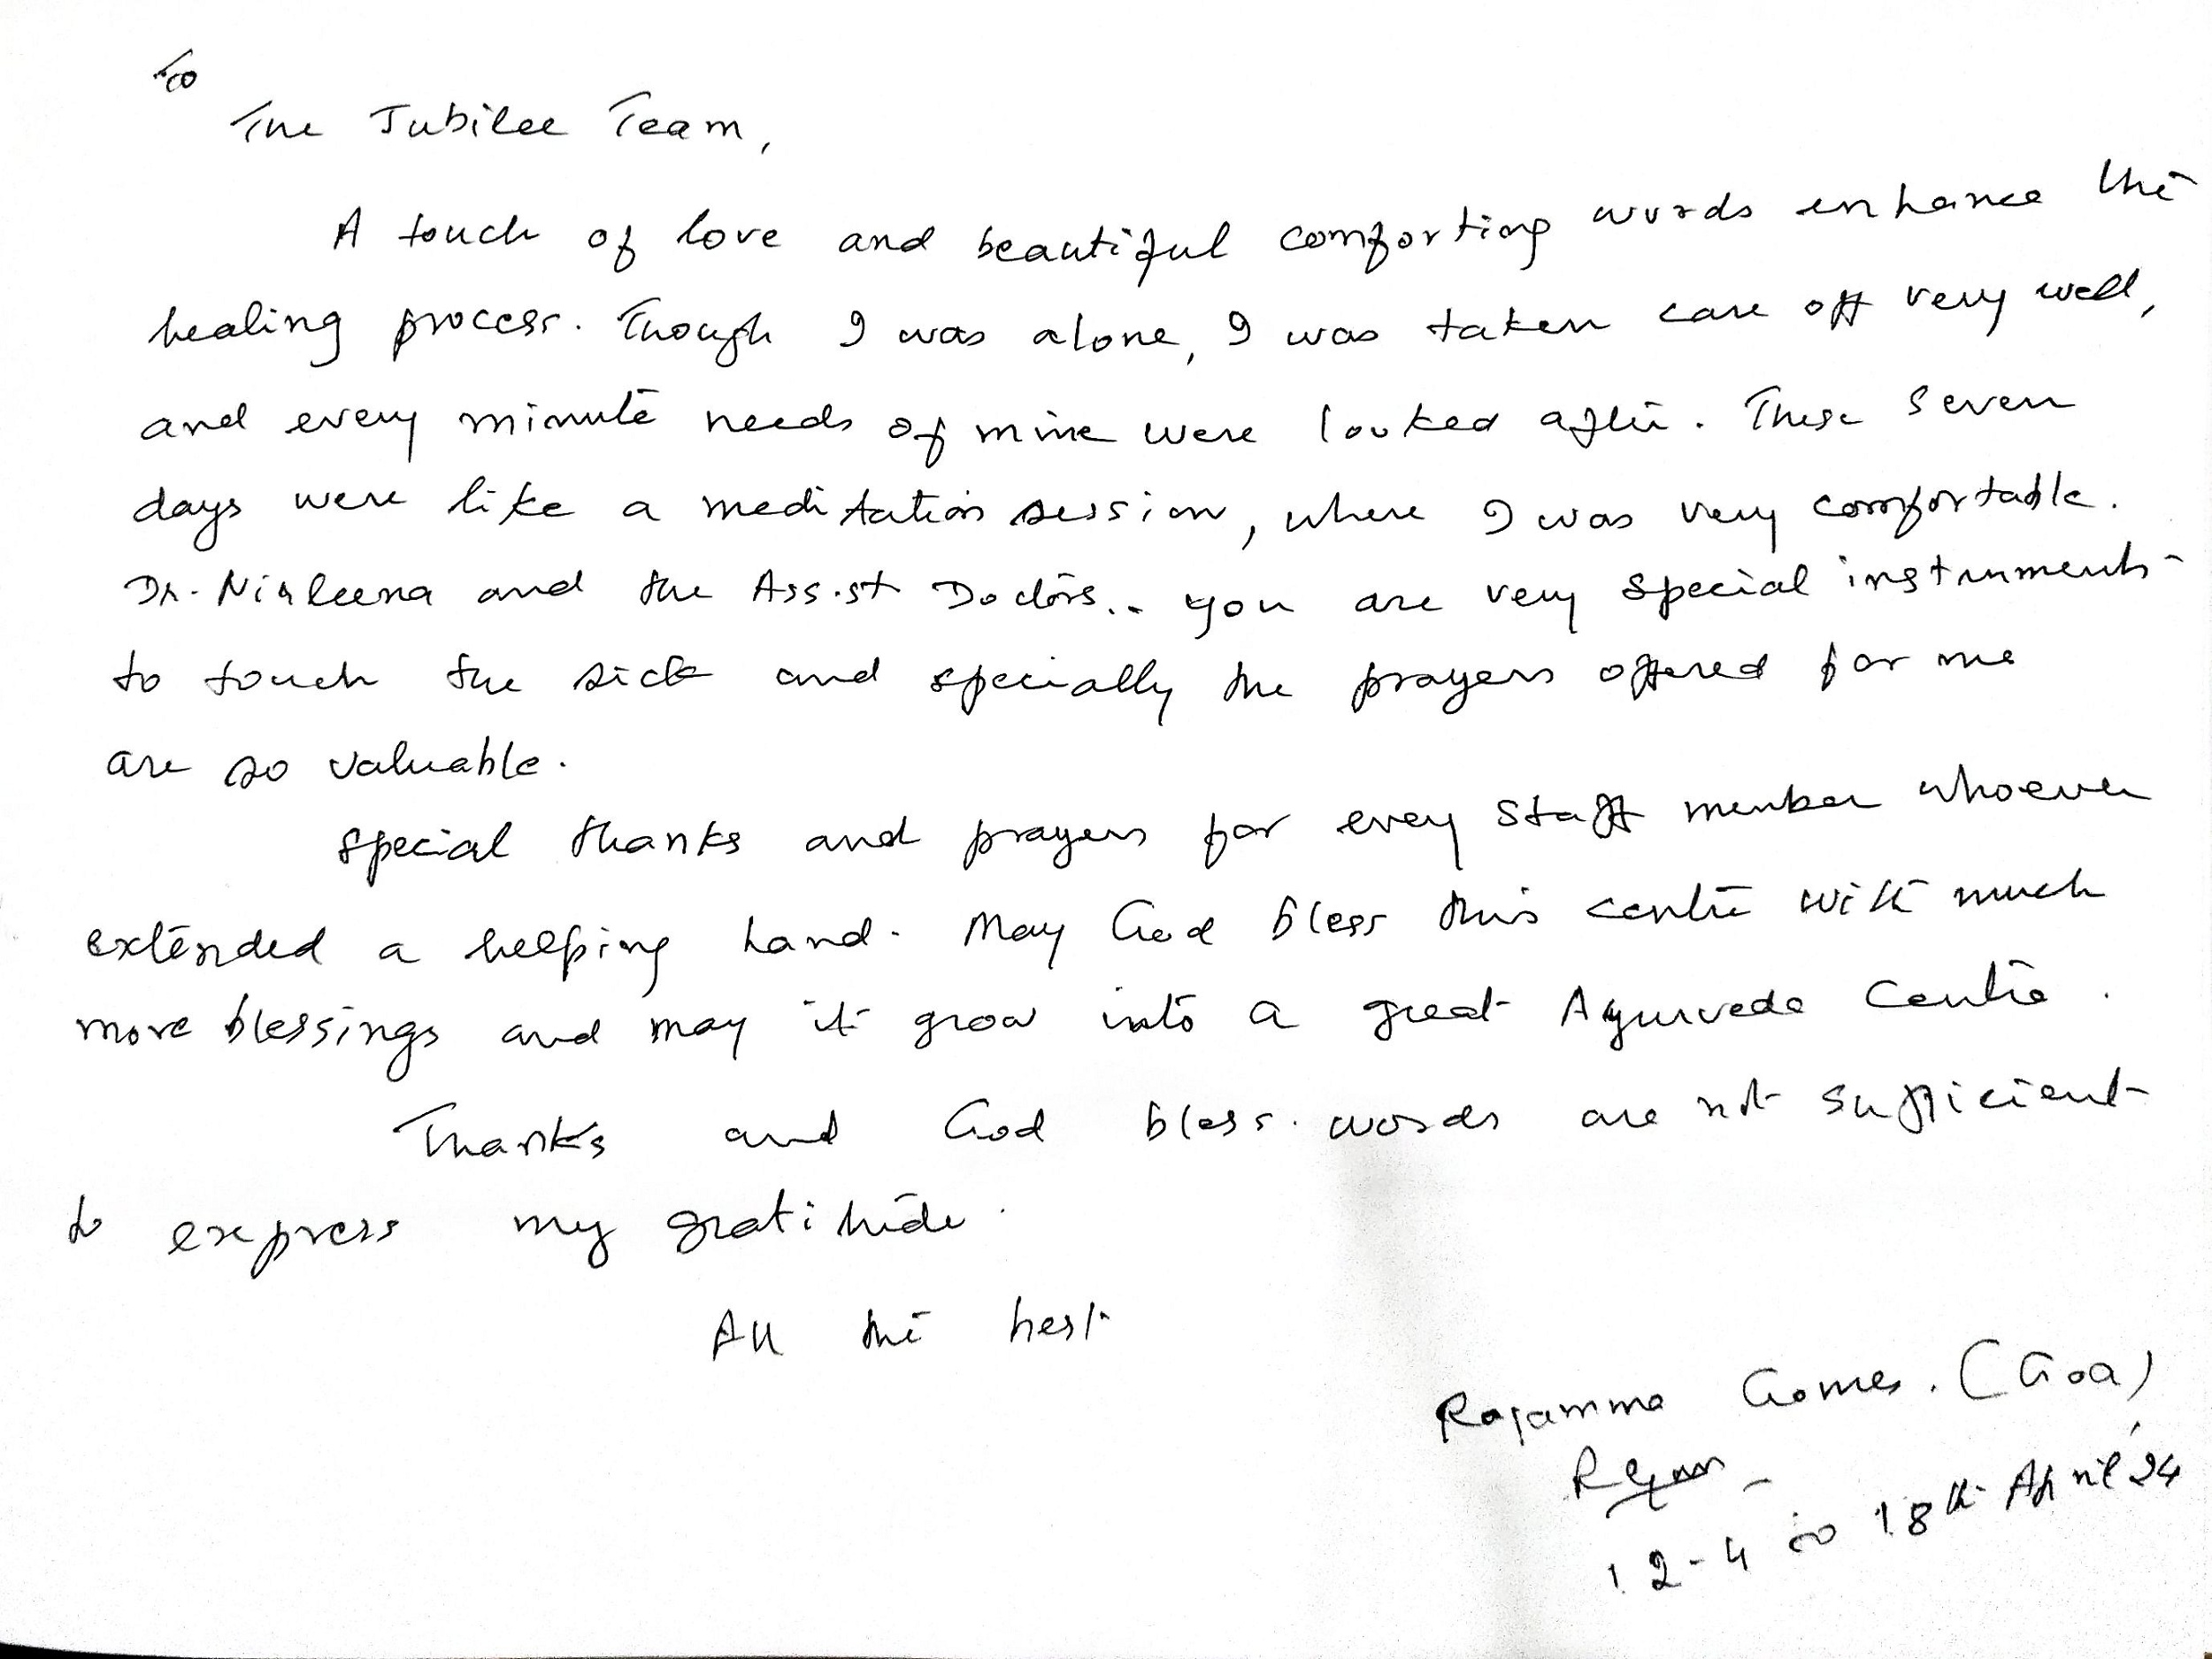 To
The Jubilee Team,
A touch of love and beautiful comforting words enhance the
healing process. Though I was alone, I was taken care off very well,
and every minute needs of mine were looked after. These seven
days were like a meditation session, where I was very comfortable.
Dr. Nirleena and the Assist Doctors.. you are very special instruments
to touch the sick and specially the prayers offered for me
are so valuable.
Special thanks and prayers for every staff member whoever
extended a helping hand. May God bless this centre with much
more blessings and may it grow into a great Ayurveda Centre.
Thanks and God bless. words are not sufficient
to express my gratitude.
All the best
Rajamma Gomes. (Goa)
12-4 to 18th April '24